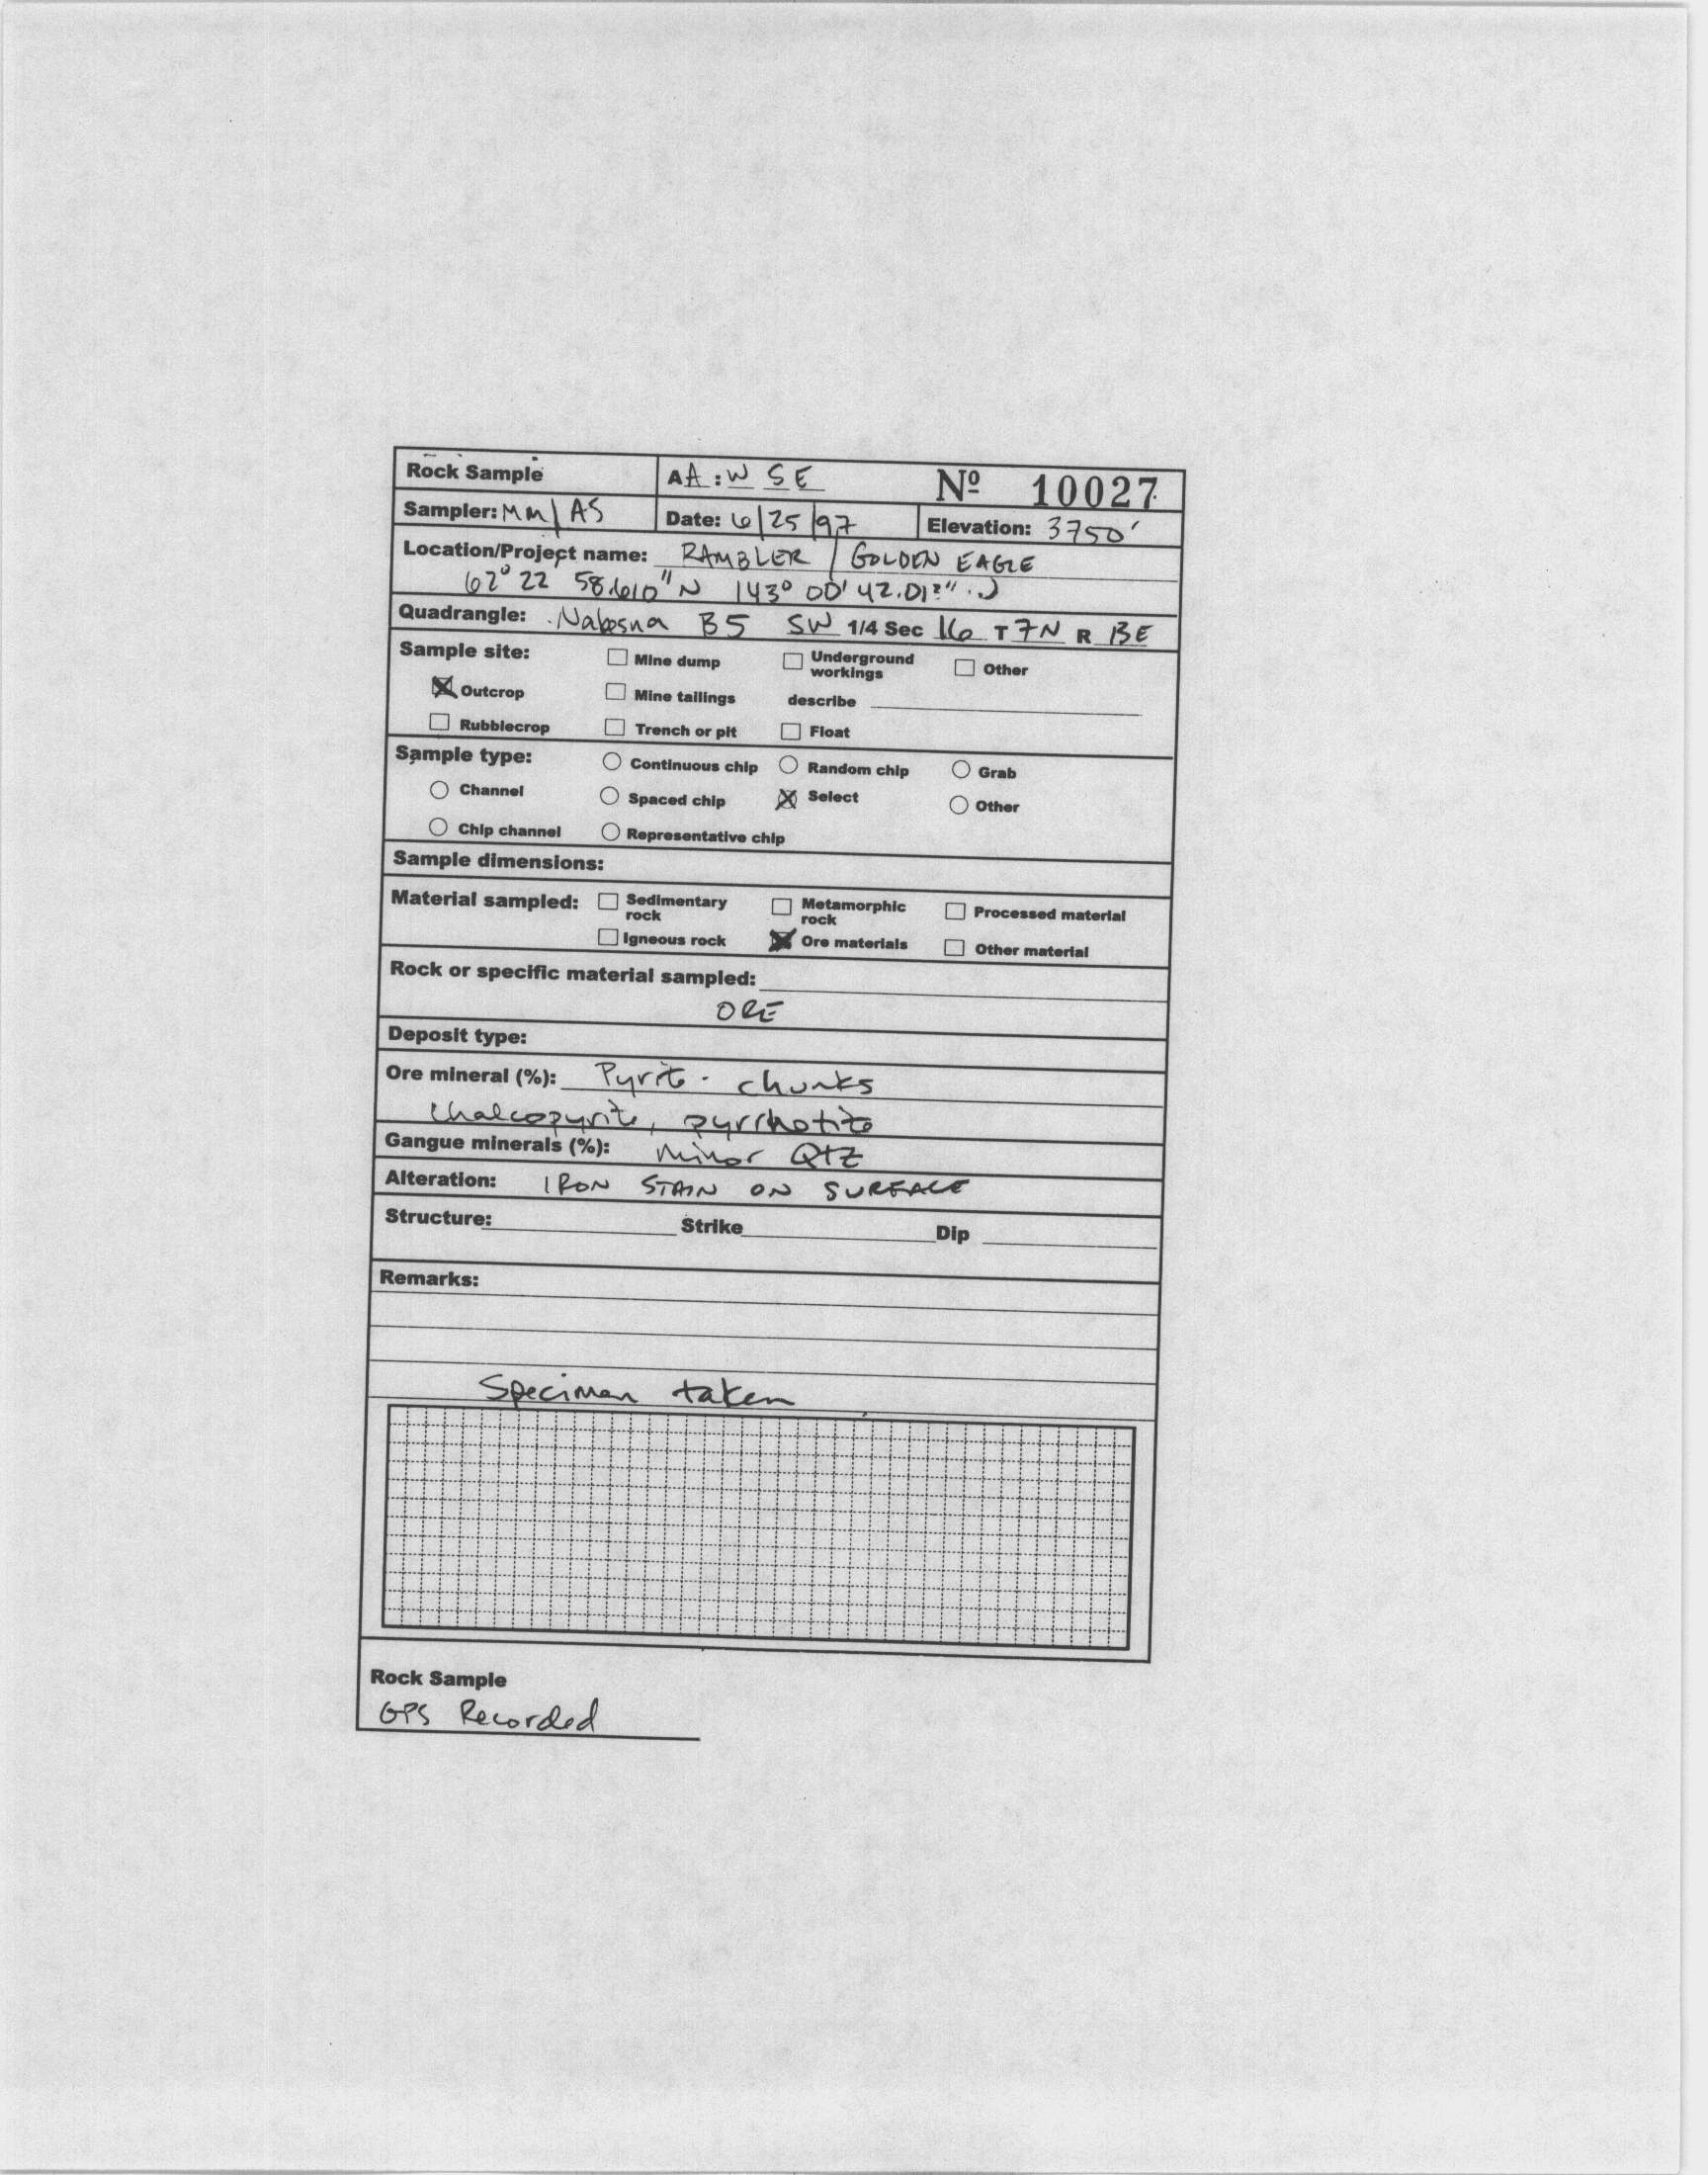 Rock Sample AA:W SE Nº 10027
Sampler: MM/AS Date: 6/25/97 Elevation: 3750'
Location/Project name: RAMBLER / GOLDEN EAGLE
62° 22 58.610" N 143° 00' 42.01
Quadrangle: Nabesna B5 SW 1/4 Sec 16 T 7N R 13E
Sample site: Mine dump Underground workings Other
Outcrop Mine tailings describe
Rubblecrop Trench or pit Float
Sample type: Continuous chip Random chip Grab
Channel Spaced chip Select Other
Chip channel Representative chip
Sample dimensions:
Material sampled: Sedimentary rock Metamorphic rock Processed material
Igneous rock Ore materials Other material
Rock or specific material sampled:
ORE
Deposit type:
Ore mineral (%): Pyrite - chunks
chalcopyrite, pyrrhotite
Gangue minerals (%): minor Qtz
Alteration: IRON STAIN ON SURFACE
Structure: Strike Dip
Remarks:
Specimen taken
Rock Sample
GPS Recorded